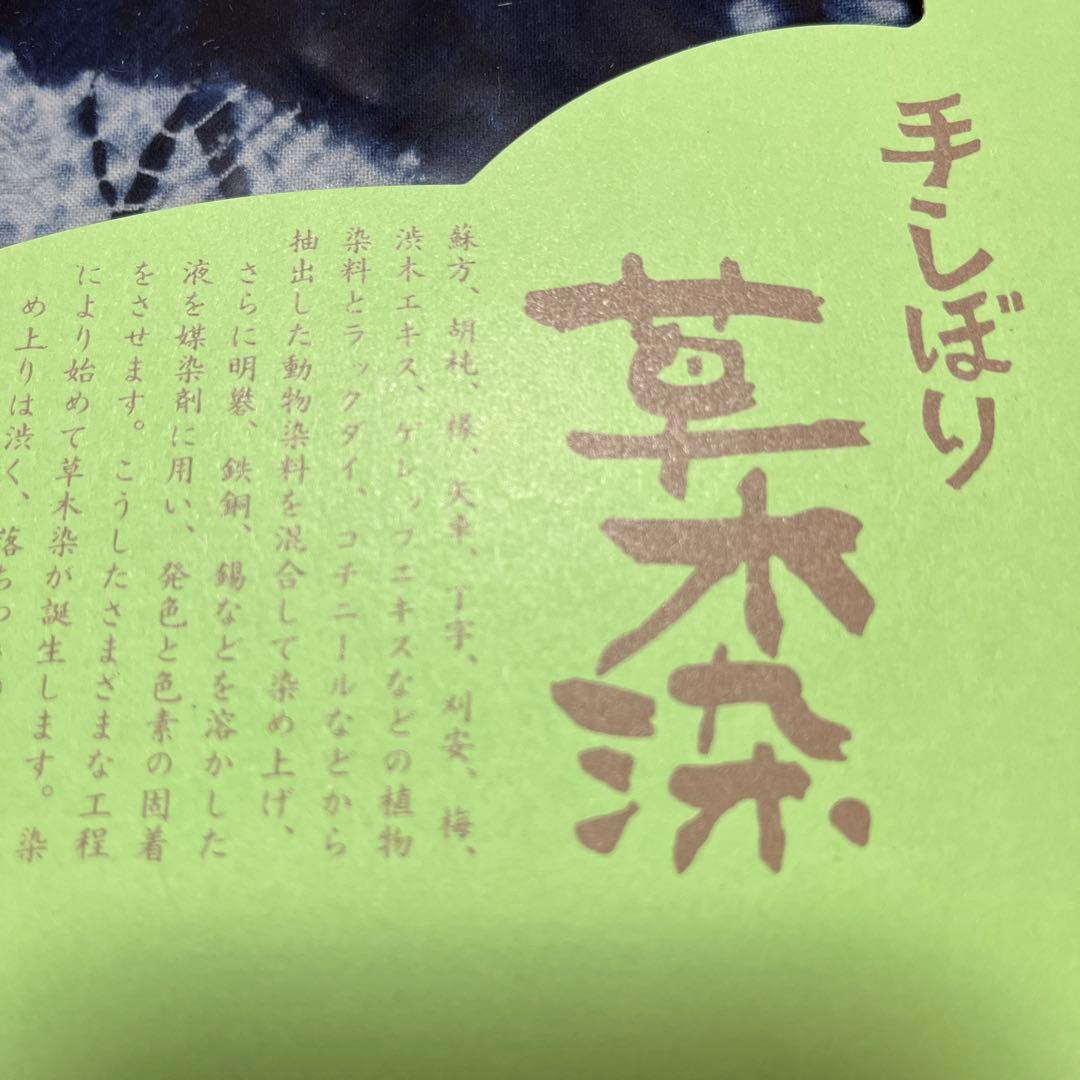 手しぼり
草木染
蘇方、胡桃、榛、矢車、丁字、刈安、梅、
渋木エキス、ゲレップエキスなどの植物
染料とラックダイ、コチニールなどから
抽出した動物染料を混合して染め上げ、
さらに明礬、鉄銅、錫などを溶かした
液を媒染剤に用い、発色と色素の固着
をさせます。こうしたさまざまな工程
により始めて草木染が誕生します。染
め上りは渋く、落ち